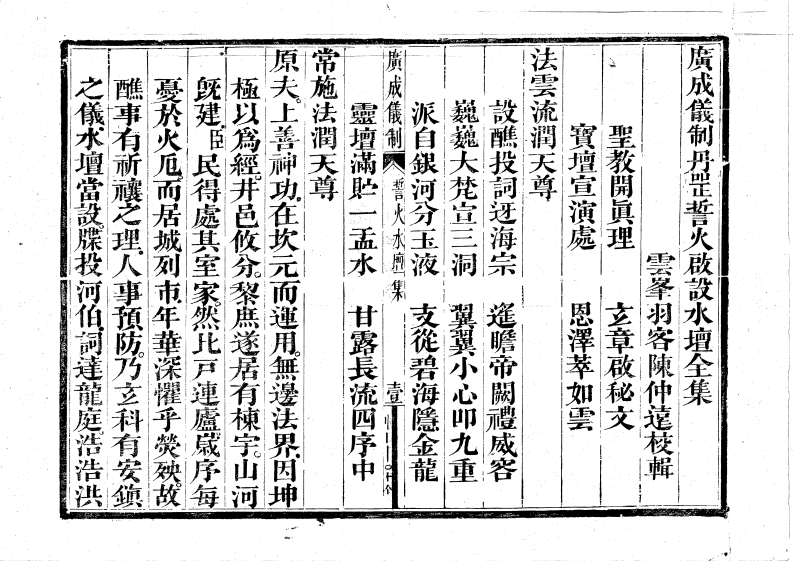 廣成儀制丹罡誓火啟設水壇全集
雲峯羽客陳仲遠校輯
聖教開眞理 玄章啟秘文
寶壇宣演處 恩澤萃如雲
法雲流潤天尊
設醮投詞迓海宗 遙瞻帝闕禮威容
巍巍大梵宣三洞 翼翼小心叩九重
派自銀河分玉液 支從碧海隱金龍
靈壇滿貯一盂水 甘露長流四序中
廣成儀制 誓火水壇集 壹
常施法潤天尊
原夫。上善神功。在坎元而運用。無邊法界。因坤
極以爲經。井邑攸分。黎庶遂居有棟宇。山河
旣建。臣民得處其室家。然比戸連廬。歲序每
憂於火厄。而居城列市。年華深懼乎熒殃。故
醮事有祈禳之理。人事預防。乃玄科有安鎭
之儀。水壇當設。牒投河伯。詞達龍庭。浩浩洪